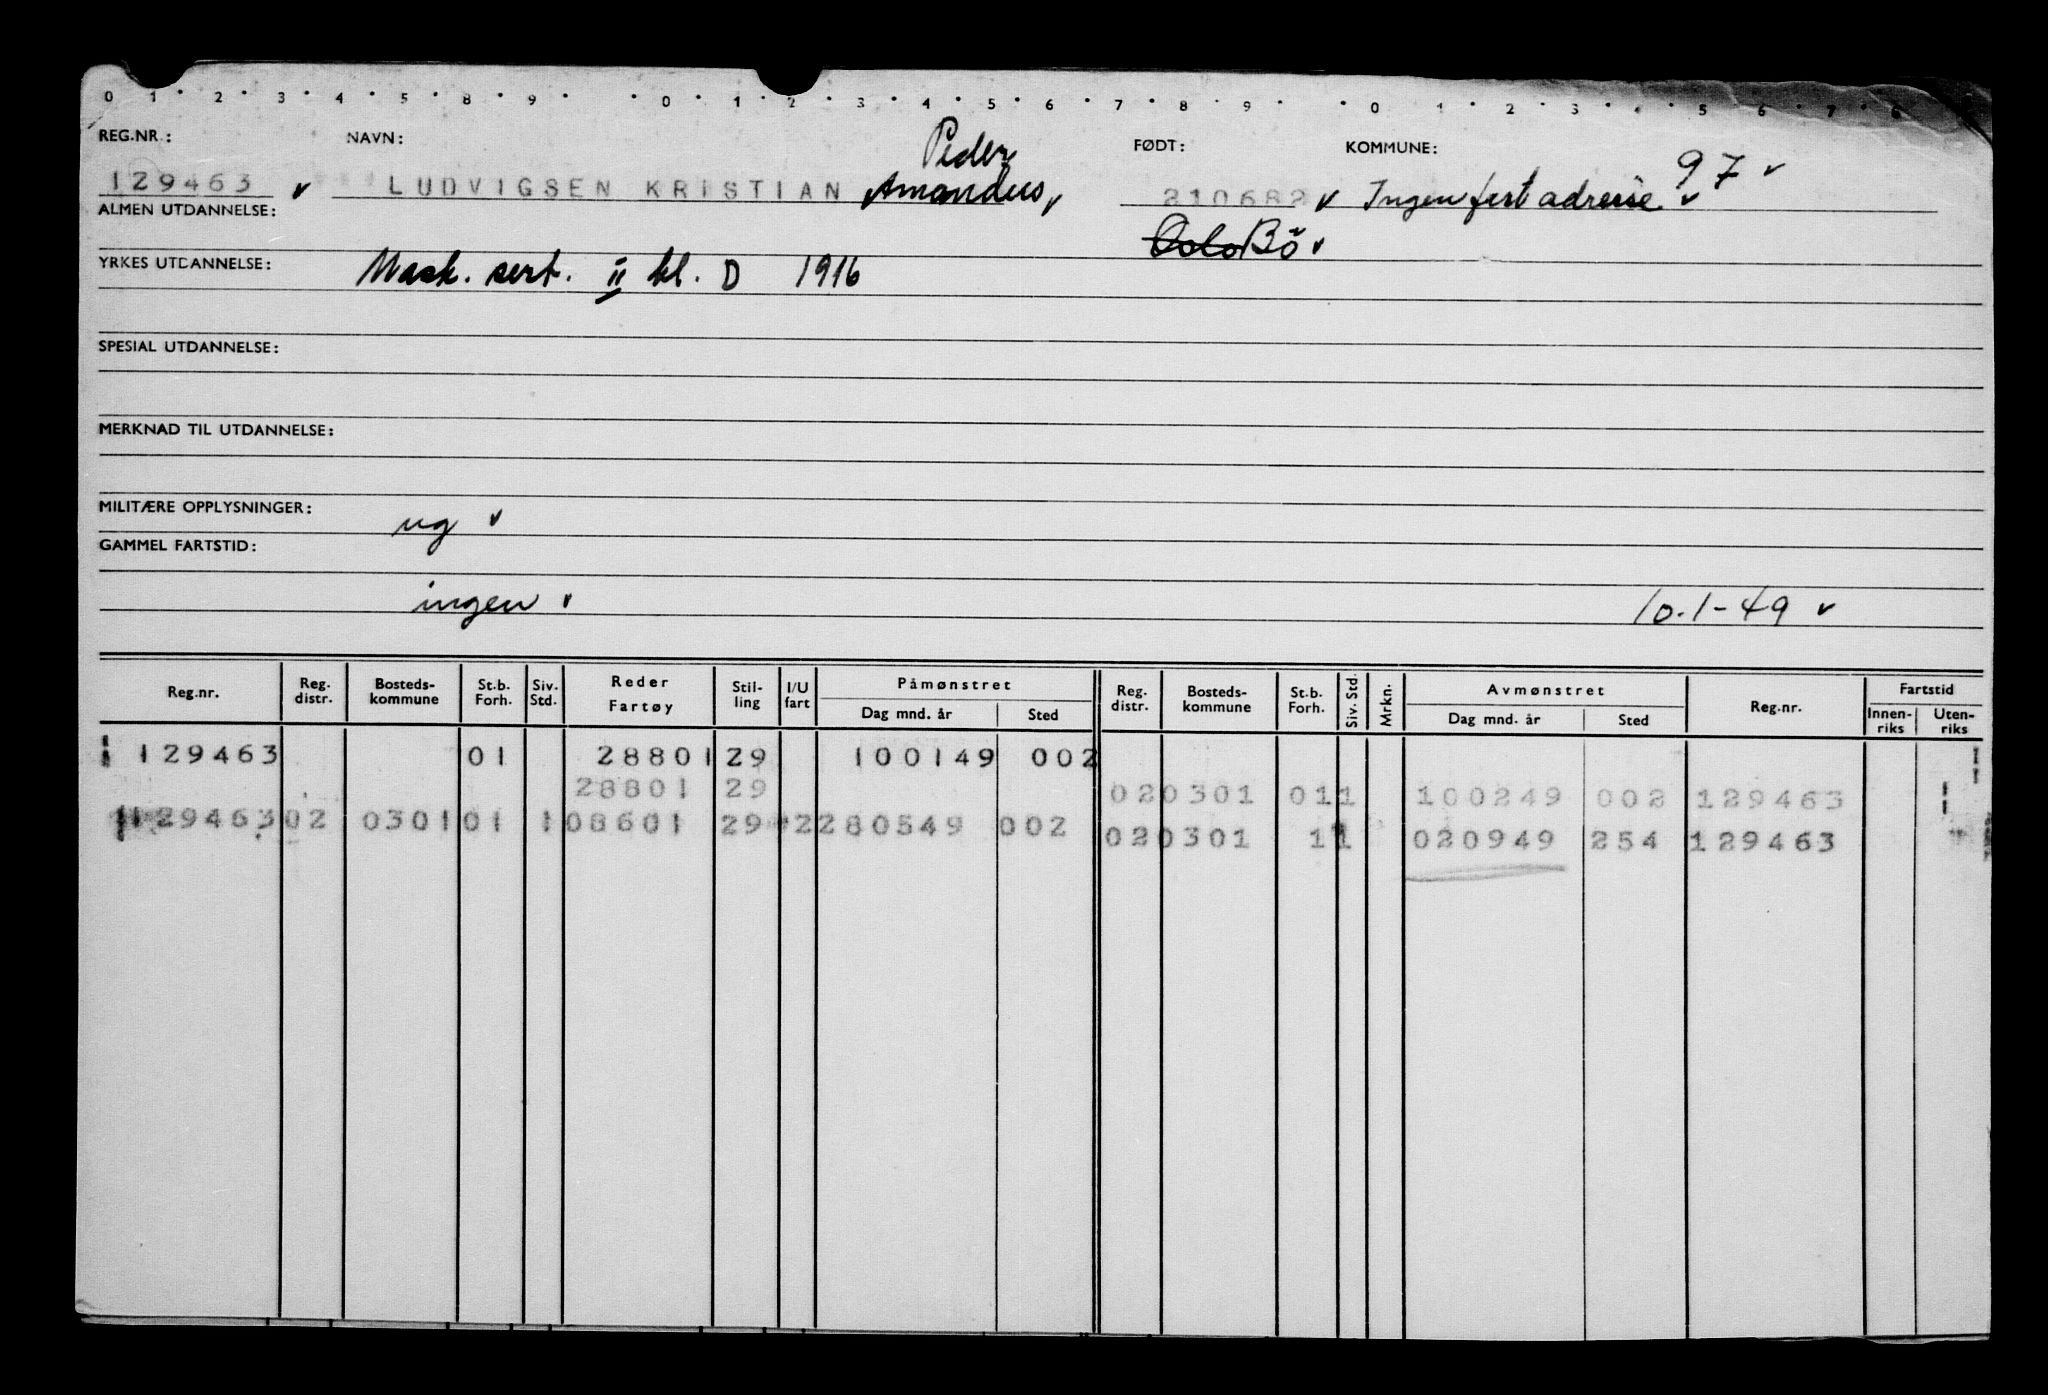 0 1 2 3 4 5 8 9 0 1 2 3 4 5 6 7 8 9 0 1 2 3 4 5 6 7 8
REG.NR.: NAVN: Peder FØDT: KOMMUNE: 97
129463 LUDVIGSEN KRISTIAN Amandus, 210682 Ingen fast adresse
ALMEN UTDANNELSE: Oslo Bö
YRKES UTDANNELSE: Mask. sert. II kl. D 1916
SPESIAL UTDANNELSE:
MERKNAD TIL UTDANNELSE:
MILITÆRE OPPLYSNINGER: ug
GAMMEL FARTSTID:
ingen 10.1-49
Reg.nr. Reg. distr. Bosteds-kommune St.b. Forh. Siv. Std. Reder Fartøy Stil-ling I/U fart Påmønstret Dag mnd. år Sted Reg. distr. Bosteds-kommune St.b. Forh. Siv. Std. Mrkn. Avmønstret Dag mnd. år Sted Reg.nr. Fartstid Innen-riks Uten-riks
129463 01 28801 29 100149 002
28801 29 020301 011 100249 002 129463
129463 02 0301 01 1 08601 29 2 280549 002 020301 11 020949 254 129463